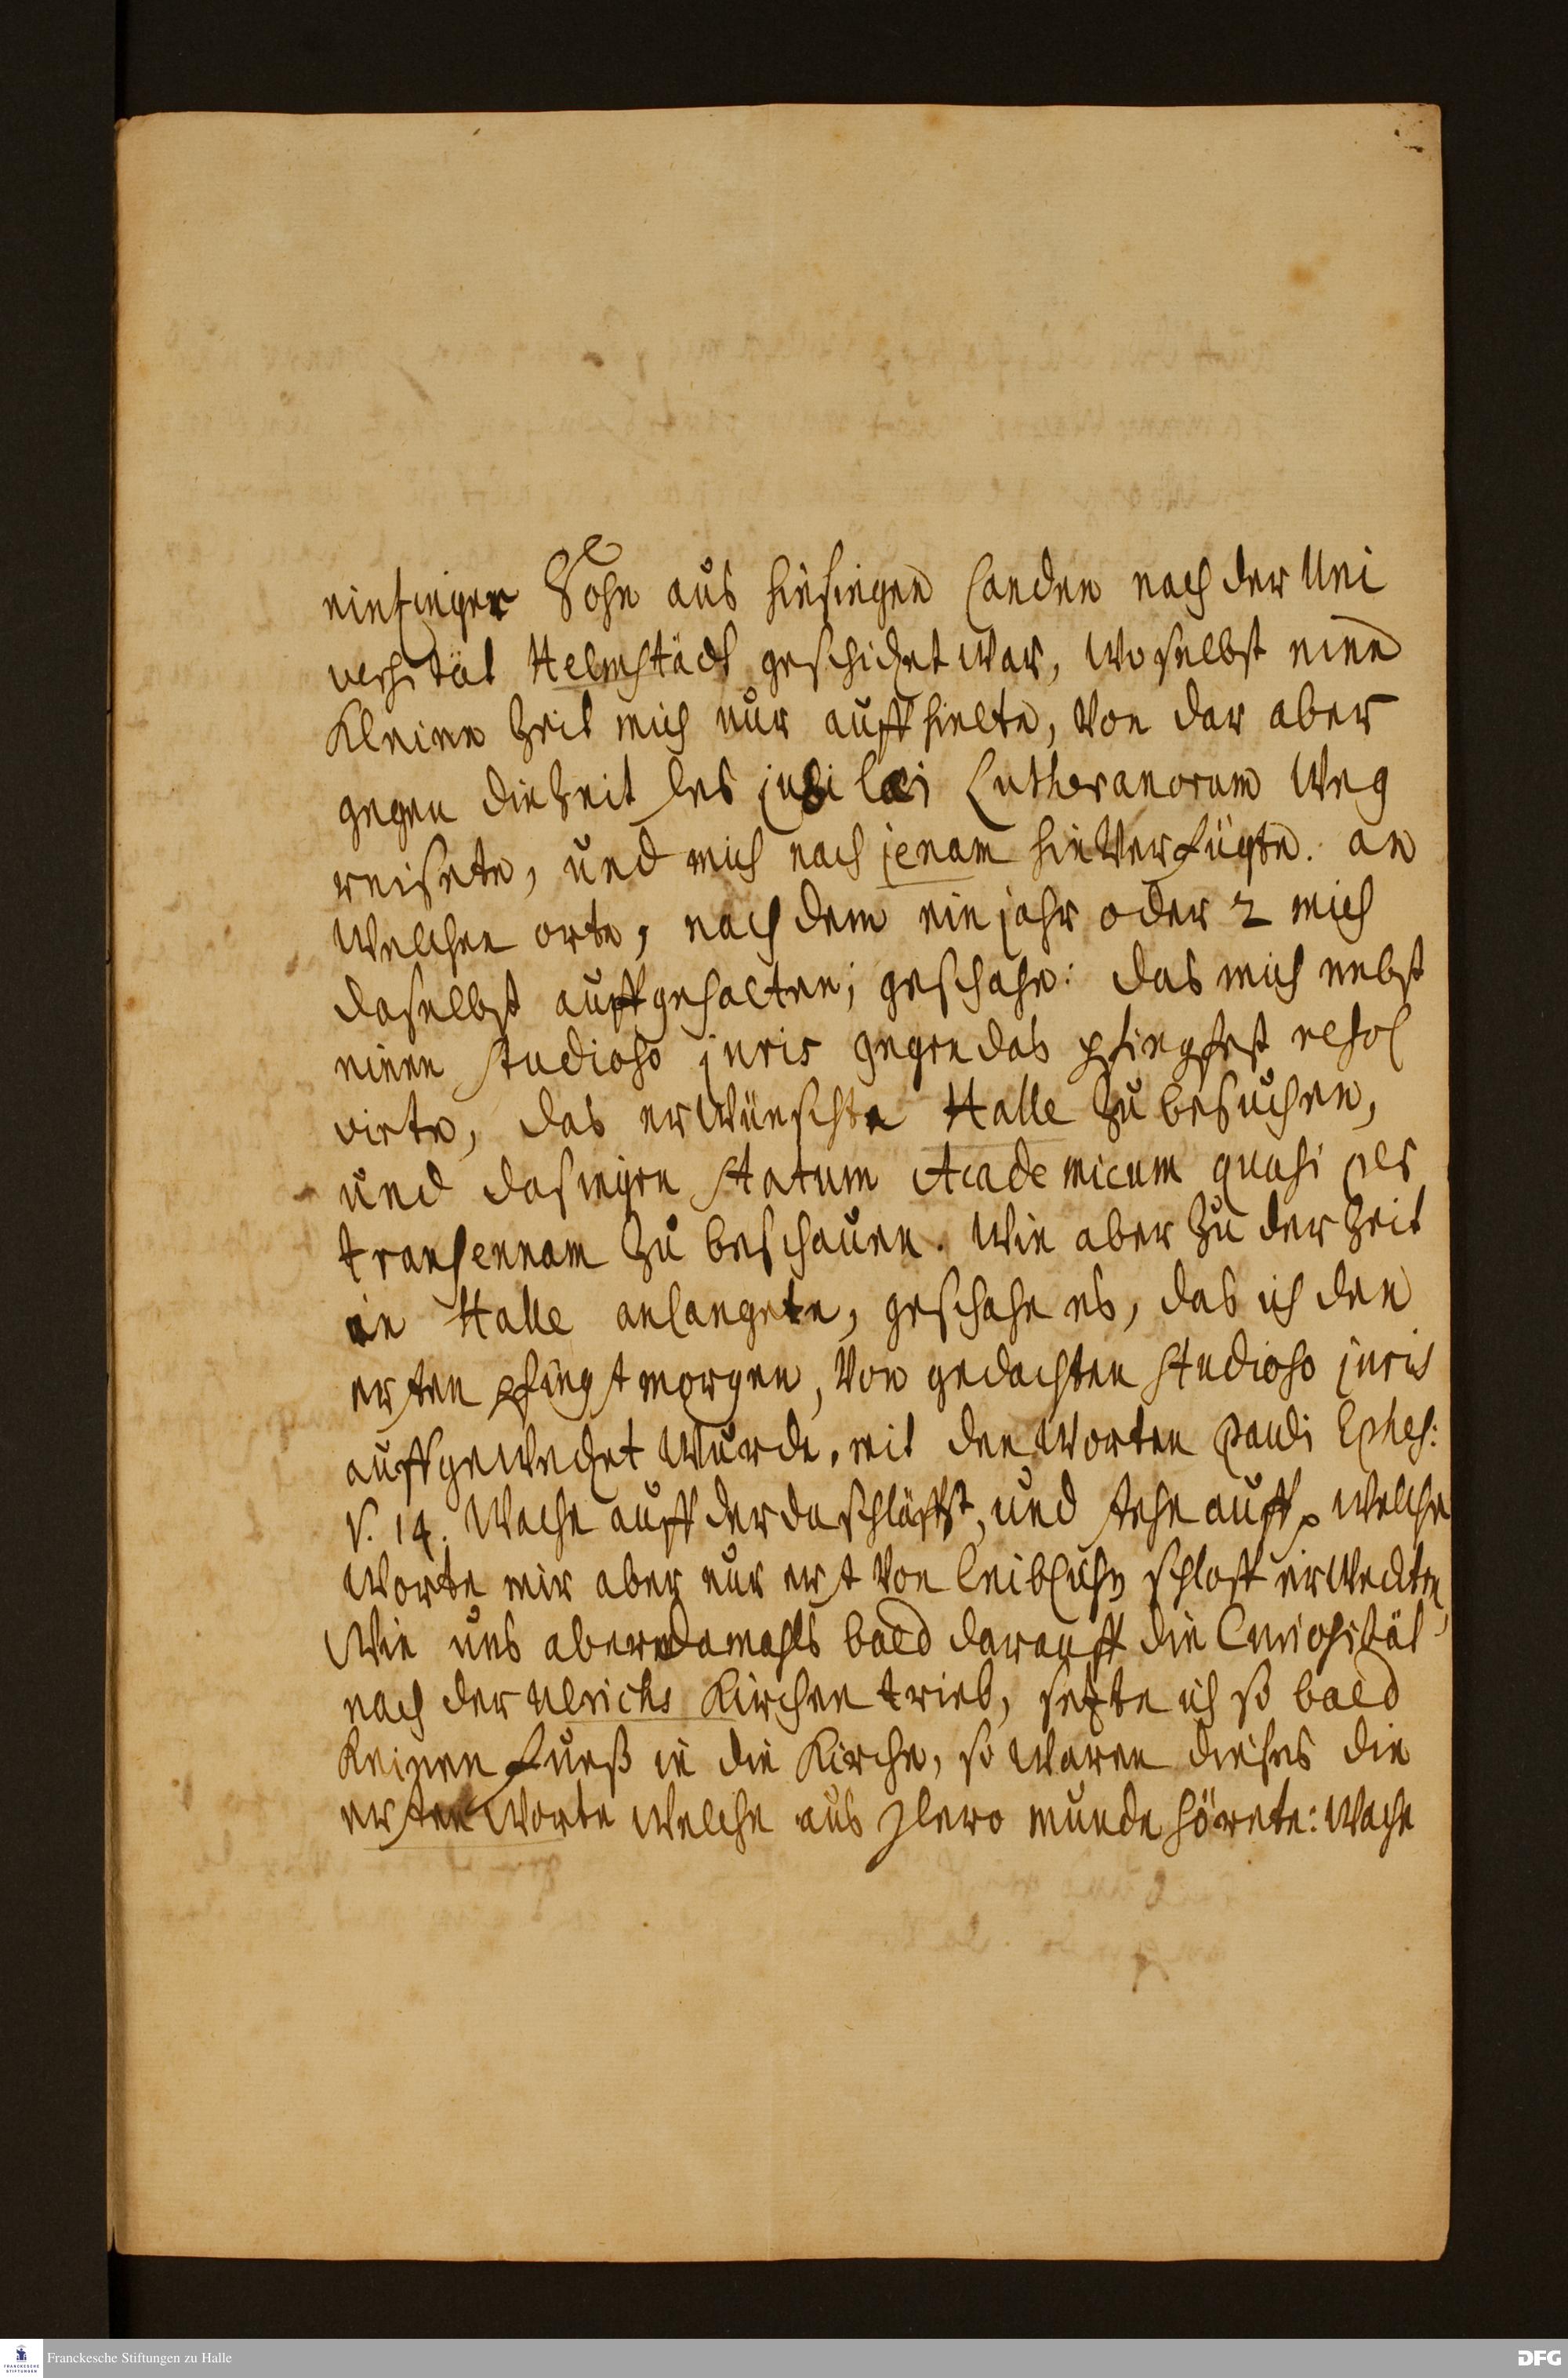 eintziger Sohn aus hiesigen landen nach der Uni
versität Helmstädt geschicket war, woselbst eine
Kleine Zeit mich nur auffhielte, von dar aber
gegen die Zeit des jubilaei Lutheranorum weg
reisete, und mich nach jenam hin verfügte. an
welchen orte, nach dem ein jahr oder 2 mich
daselbst auffgehalten; geschahe: das mich nebst
einen studioso juris gegen das pfingfest resol
virte, das erwünschte Halle zu besuchen,
und dasiegen statum Academicum quasi per
transennam zu beschauen. Wie aber zu der Zeit
in Halle anlangete, geschahe es, das ich den
ersten pfingstmorgen, von gedachten studioso juris
auffgewecket wurde, mit den Worten Pauli Ephes:
V. 14. Wache auff der du schläffst, und stehe auff welche
Worte mir aber nur erst von schlaff erweckten,
Wie uns aber damahls bald darauff die Curiosität
nach der Ulrichs Kirchen trieb, setzte ich so bald
Keinen Fueß in die Kirche, so waren dieses die
ersten Worte welche aus Ihro munde hörete: Wache
Franckesche Stiftungen zu Halle
FRANCKESCHE
STIFTUNGEN
DFG